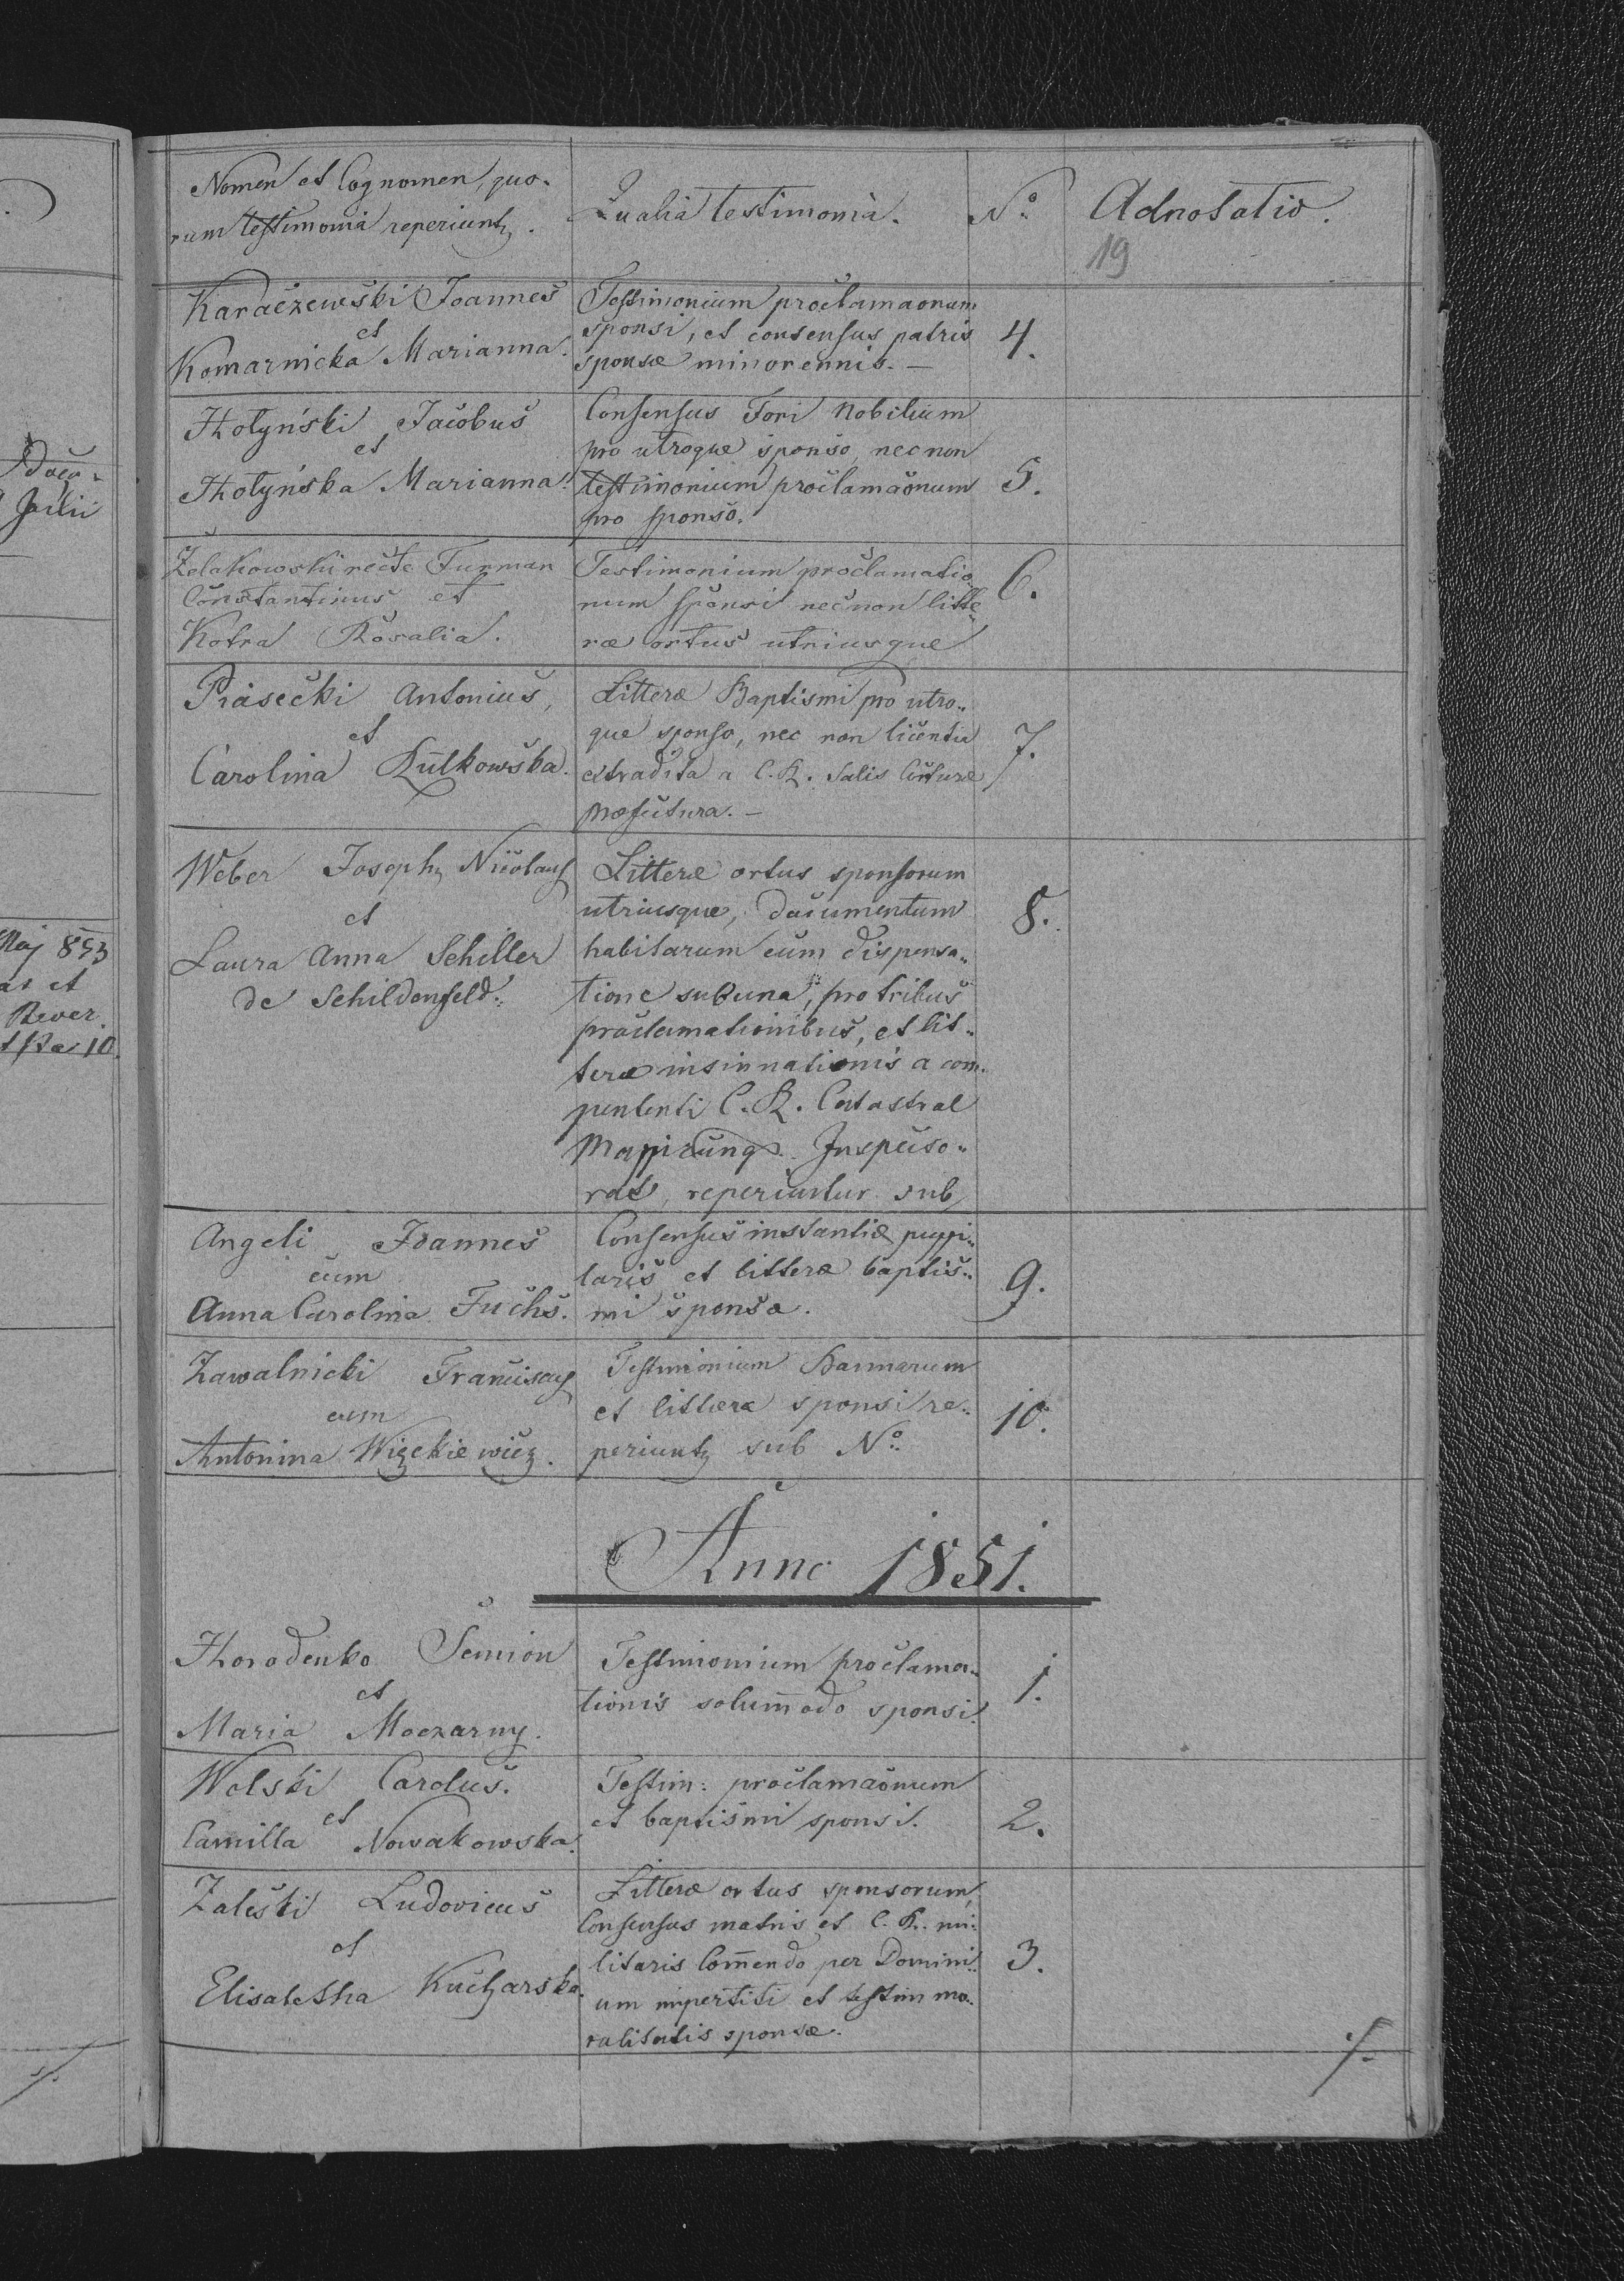 Nomen et Cognomen, quo-
rum testimonia reperiuntr.
Qualia testimonia.
No
Adnotatio.
19
Karaczewski Joannes
et
Komarnicka Marianna.
Testimonium proclamaonum
sponsi, et consensus patris
sponsæ minorennis. —
4.
Hołyński Jacobus
et
Hołyńska Marianna.
Consensus Fori Nobilium
pro utroque sponso, nec non
testimonium proclamaōnum
pro sponso.
5.
Zelakowski recte Furman
Constantinus et
Kotra Rosalia.
Testimonium proclamatio
num sponsi nec non litte
ræ ortus utriusque
6.
Piasecki Antonius,
et
Carolina Rutkowska.
Litteræ Baptismi pro utro„
que sponso, nec non licentia
extradita a C. R. Salis
præfectura. —
7.
Weber Joseph, Nicolaus
et
Laura Anna Schiller
de Schildenfeld.
Litteræ ortus sponsorum
utriusque, documentum
habitarum cum dispensa„
tione sub una, pro tribus
proclamationibus, et lit„
teræ insinnationis a com„
pententi C. R. Catastral
Mappirungs Inspecso„
rat, reperiuntur sub
8.
Angeli Joannes
cum
Anna Carolina Fuchs.
Consensus instantiæ puppi„
laris et litteræ baptis„
mi sponsa.
9.
Zawalnicki Franciscus
cum
Antonina Wizekiewicz.
Testimonium Bannarum
et litteræ sponsi re„
periuntr sub No
10.
Anno 1851.
Horodenko Semion
et
Maria Moczarny.
Testimonium proclama„
tionis solummodo sponsi.
1.
Wolski Carolus.
et
Camilla Nowakowska.
Testim: proclamaōnum
et baptismi sponsi.
2.
Zaleski Ludovicus
et
Elisabetha Kucharska.
Litteræ ortus sponsorum,
Consensus matris et C. R. mi„
litaris Com̄endo per Domini„
um impertiti et testim mo„
ralitatis sponsæ.
3.
./.
Julii
Maj 853
et
10.
./.